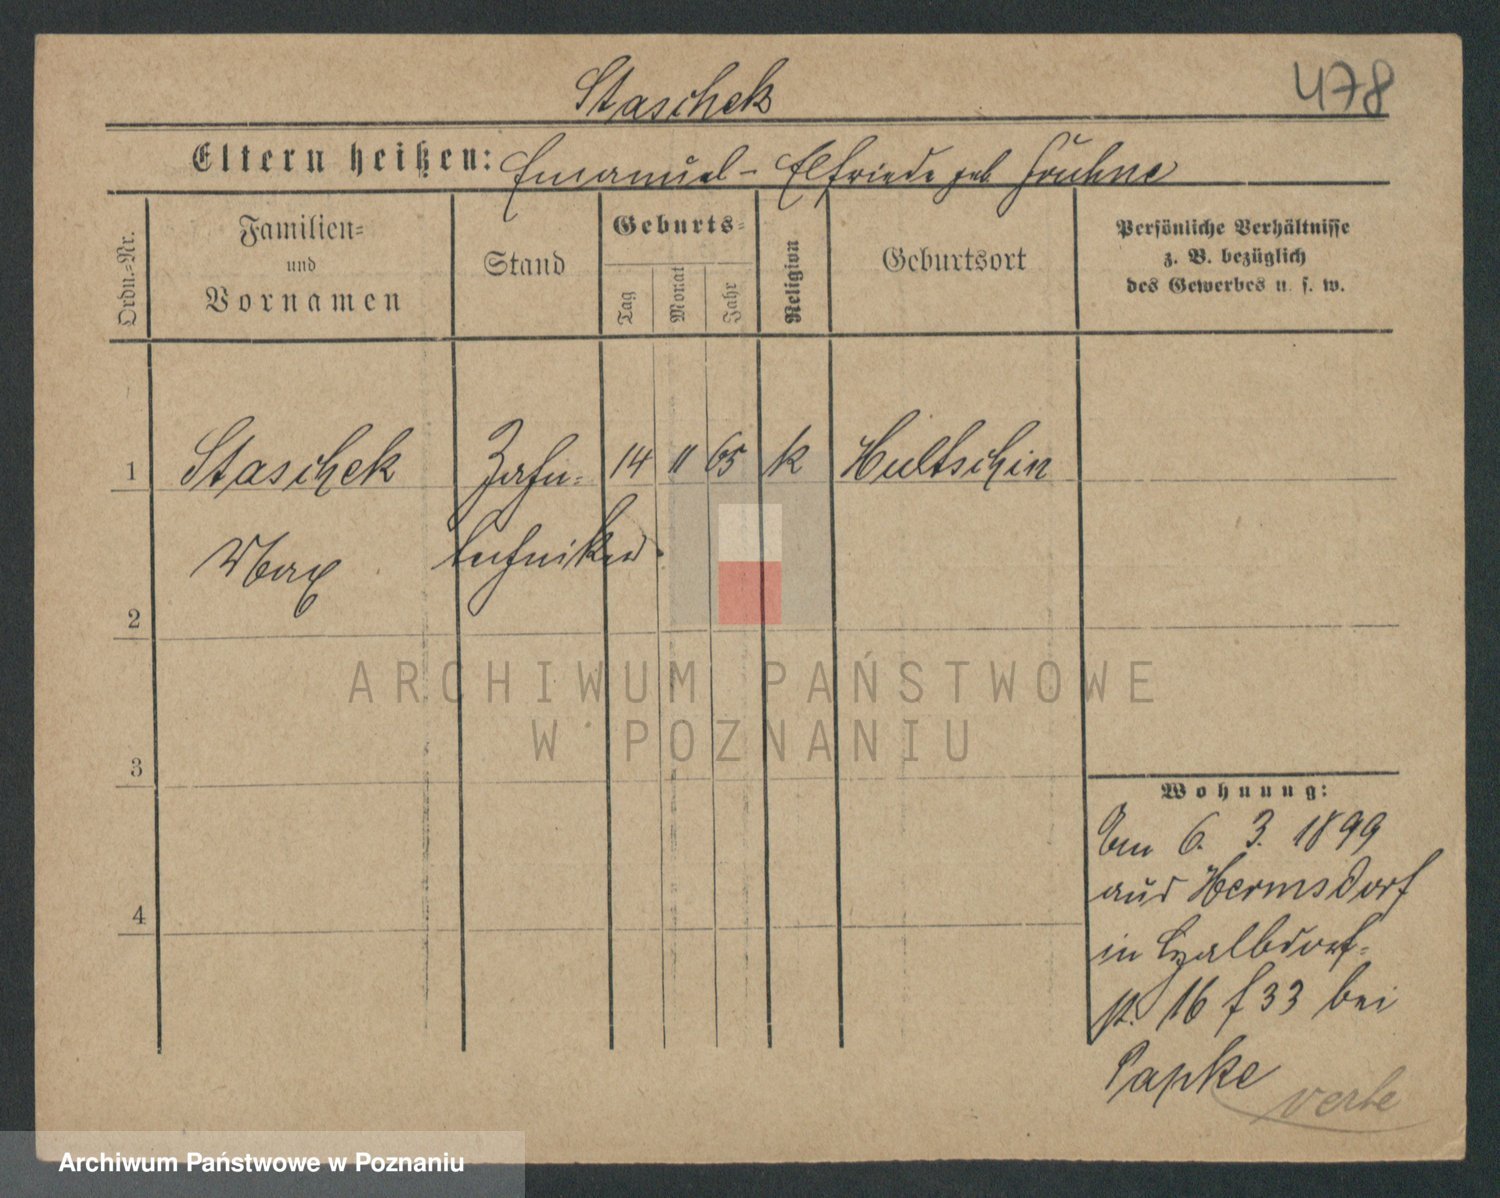 478
Staschek
Eltern heißen: Emanuel - Elfriede geb
Ordn.-Nr.
Familien-
und
Vornamen
Stand
Geburts-
Tag
Monat
Jahr
Religion
Geburtsort
Persönliche Verhältnisse
z. B. bezüglich
des Gewerbes u. s. w.
1
Staschek
Zahn-
14
11
65
k
Hultschin
Max
techniker
2
3
4
ARCHIWUM PAŃSTWOWE
W POZNANIU
Wohnung:
6. 3. 1899
aus Hermsdorf
in
16 f 33 bei
Papke
Archiwum Państwowe w Poznaniu